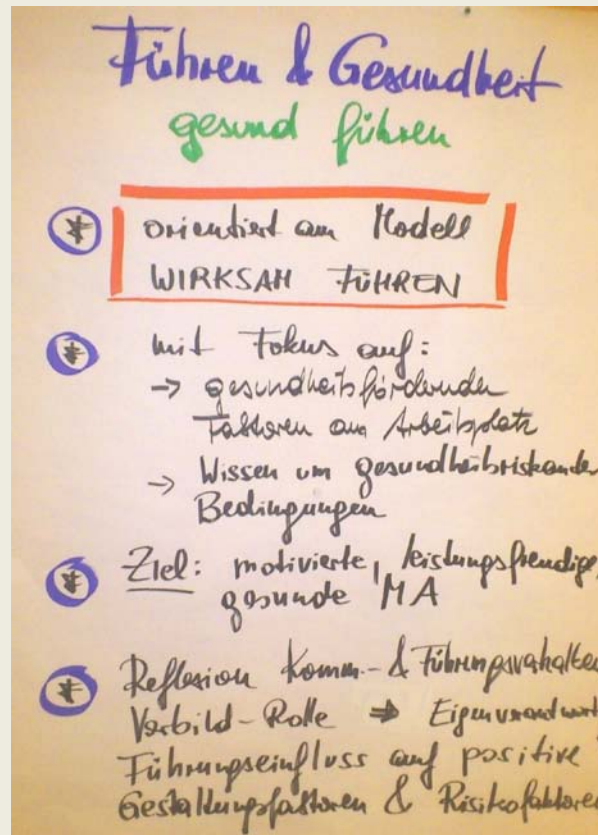 Führen & Gesundheit
gesund führen
orientiert am Modell
WIRKSAM FÜHREN
mit Fokus auf:
→ gesundheitsfördernden
Faktoren am Arbeitsplatz
→ Wissen um gesundheitsriskanden
Bedingungen
Ziel: motivierte, leistungsfreudige,
gesunde MA
Reflexion Komm- & Führungsverhalten
Vorbild-Rolle ⇒ Eigenverantwort
Führungseinfluss auf positive
Gestaltungsfaktoren & Risikofaktoren